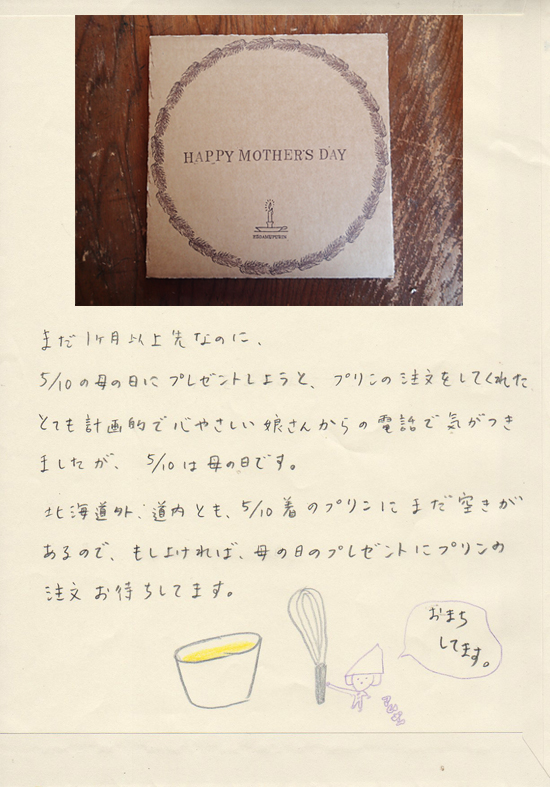 HAPPY MOTHER'S DAY
まだ1ヶ月以上先なのに、
5/10の母の日にプレゼントしようと、プリンの注文をしてくれた
とても計画的で心やさしい娘さんからの電話で気がつき
ましたが、5/10は母の日です。
北海道外、道内とも、5/10着のプリンにまだ空きが
あるので、もしよければ、母の日のプレゼントにプリンの
注文お待ちしてます。
おまち
してます。